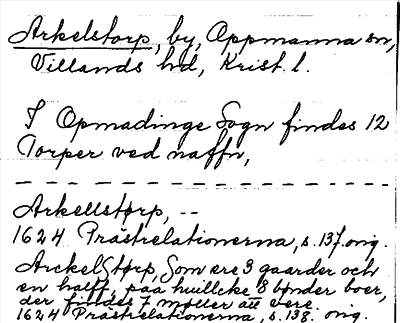 Arkelstorp, by, Oppmanna sn,
Villands hd, Krist. l.
I Opmadinge Sogn findes 12
Torper ved naffn,
Arkellstørp, --
1624 Prästrelationerna, s. 137. orig.
Arckelstørp, Som ere 3 gaarder och
en halff, paa huillcke 8 bønder boer,
der findes 7 møller att vere.
1624 Prästrelationerna, s. 138. orig.